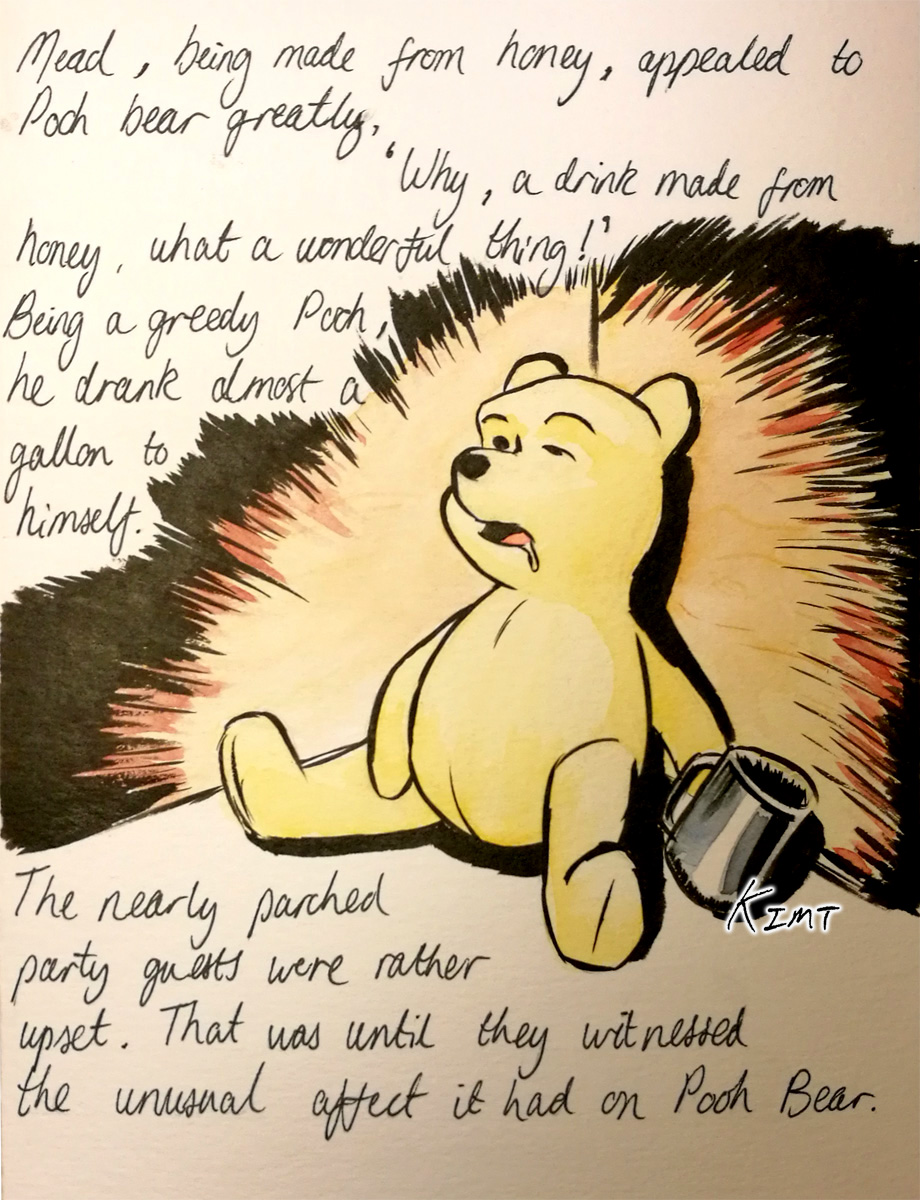 Mead, being made from honey, appealed to
Pooh bear greatly.
'Why, a drink made from
honey, what a wonderful thing!'
Being a greedy Pooh,
he drank almost a
gallon to
himself.
KIMT
The nearly parched
party guests were rather
upset. That was until they witnessed
the unusual affect it had on Pooh Bear.